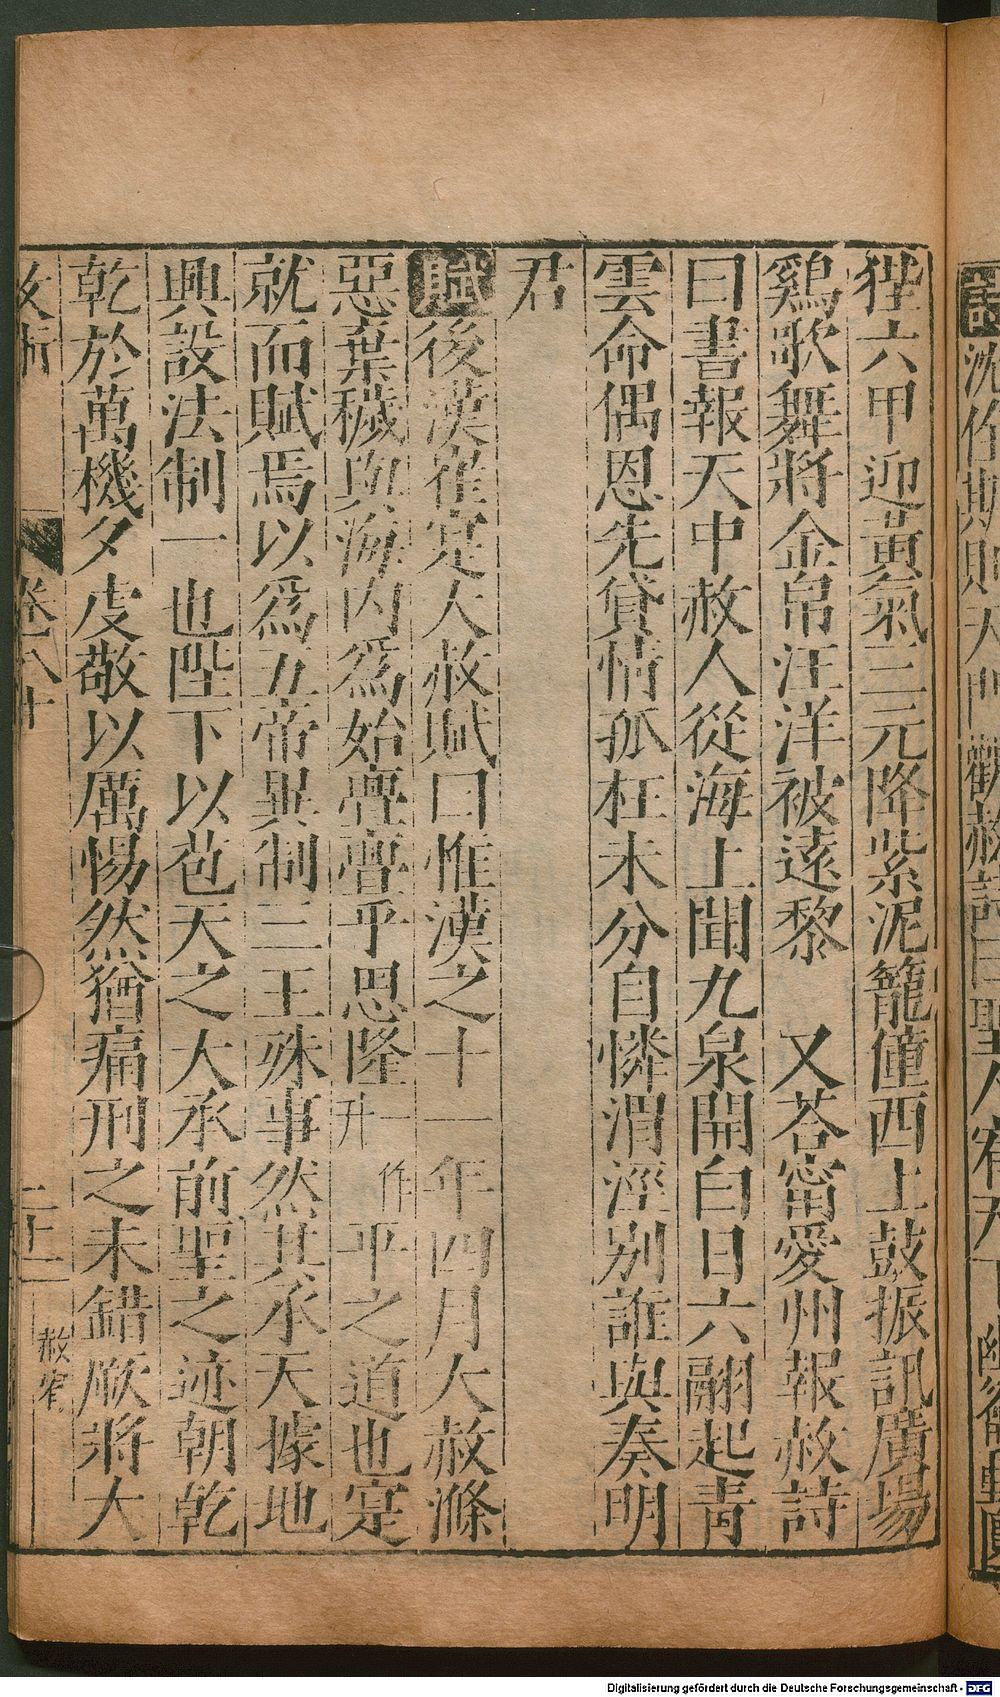 狴六甲迎黃氣三元降紫泥籠僮西上鼓振訊廣場
鷄歌舞將金帛汪洋被遠黎　又荅甯愛州報赦詩
曰書報天中赦人從海上聞九泉開白日六翮起青
雲命偶恩先貸情孤枉未分自憐渭涇別誰與奏明
君
賦後漢崔寔大赦賦曰惟漢之十一年四月大赦滌
惡棄穢與海内爲始亹亹乎思隆一作升平之道也寔
就而賦焉以爲五帝異制三王殊事然其承天據地
興設法制一也陛下以苞天之大承前聖之迹朝乾
乾於萬機夕虔敬以厲惕然猶痛刑之未錯厥將大
卷八十
二十二
赦宥
詩沈佺期則天門觀赦詩曰聖人宥
Digitalisierung gefördert durch die Deutsche Forschungsgemeinschaft - DFG